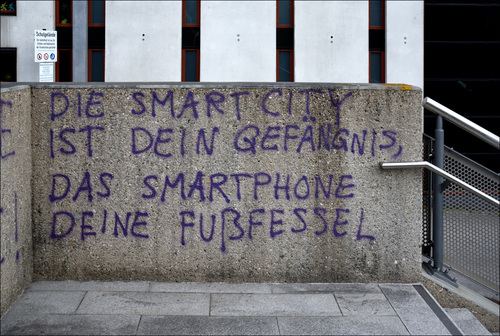 Schulgelände
DIE SMART CITY
IST DEIN GEFÄNGNIS,
DAS SMARTPHONE
DEINE FUßFESSEL